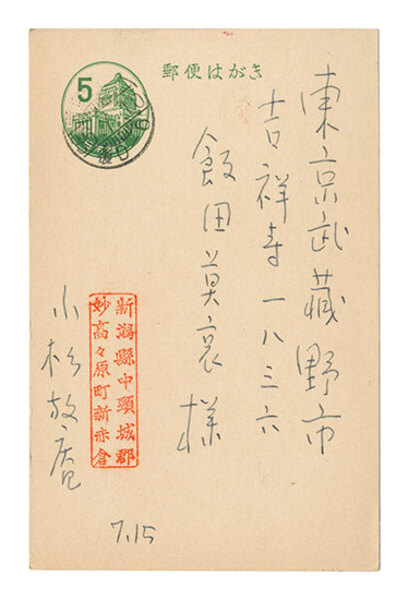 郵便はがき
5
東京武蔵野市
吉祥寺一八三六
飯田莫哀様
新潟縣中頸城郡
妙高々原町新赤倉
小松放庵
7.15